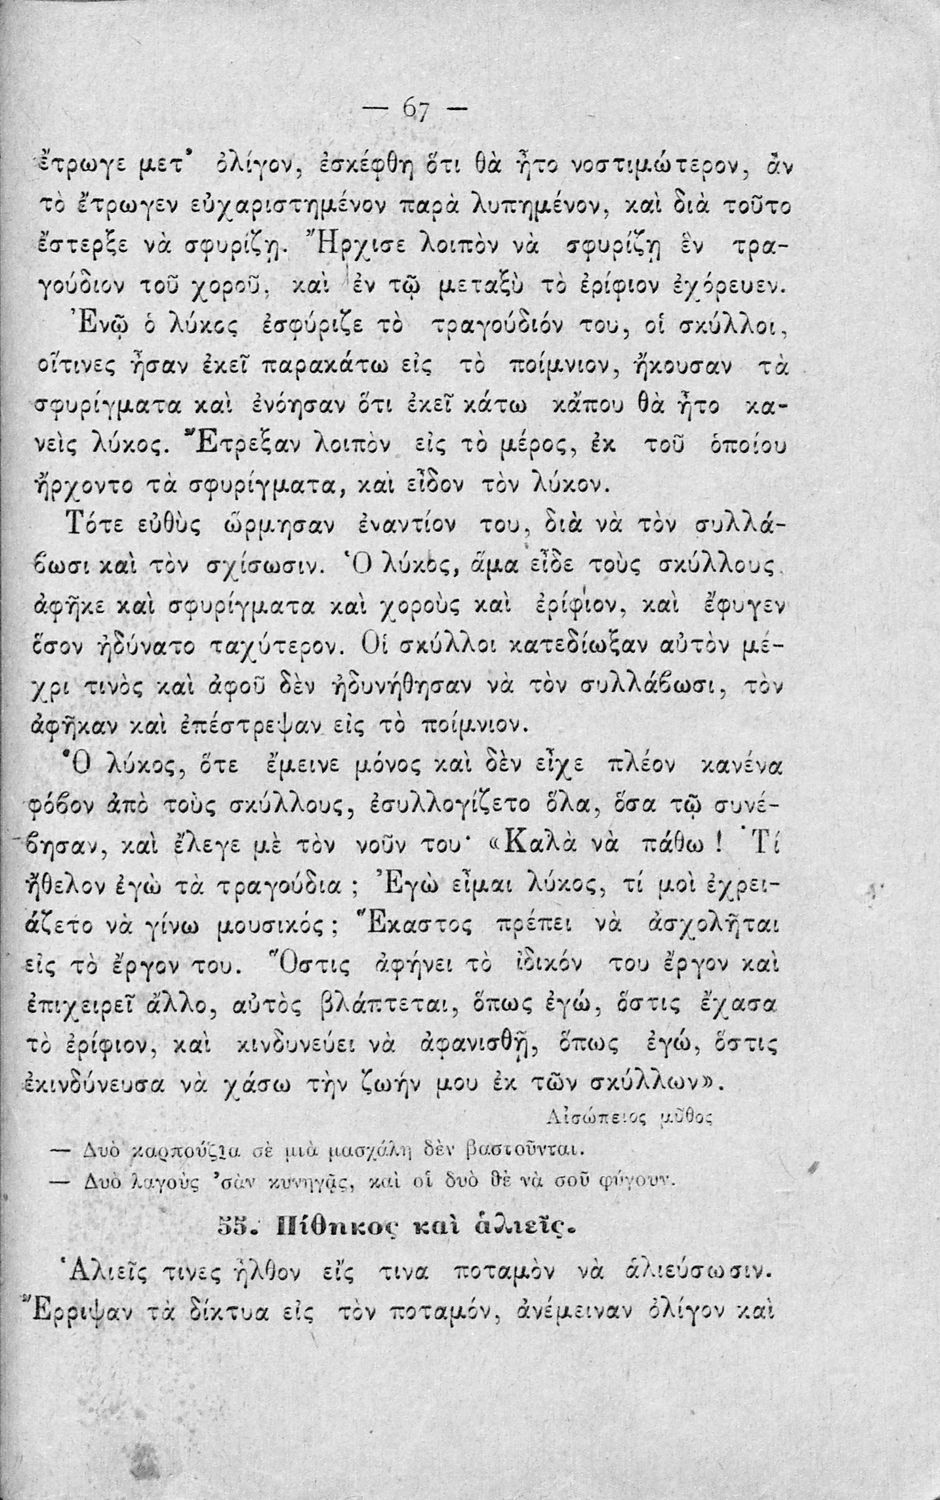 — 67 —
ἔτρωγε μετ' ὀλίγον, ἐσκέφθη ὅτι θὰ ἦτο νοστιμώτερον, ἂν
τὸ ἔτρωγεν εὐχαριστημένον παρὰ λυπημένον, καὶ διὰ τοῦτο
ἔστερξε νὰ σφυρίζῃ. Ἤρχισε λοιπὸν νὰ σφυρίζῃ ἓν τρα-
γούδιον τοῦ χοροῦ, καὶ ἐν τῷ μεταξὺ τὸ ἐρίφιον ἐχόρευεν.
Ἐνῷ ὁ λύκος ἐσφύριζε τὸ τραγούδιόν του, οἱ σκύλλοι,
οἵτινες ἦσαν ἐκεῖ παρακάτω εἰς τὸ ποίμνιον, ἤκουσαν τὰ
σφυρίγματα καὶ ἐνόησαν ὅτι ἐκεῖ κάτω κἄπου θὰ ἦτο κα-
νεὶς λύκος. Ἔτρεξαν λοιπὸν εἰς τὸ μέρος, ἐκ τοῦ ὁποίου
ἤρχοντο τὰ σφυρίγματα, καὶ εἶδον τὸν λύκον.
Τότε εὐθὺς ὥρμησαν ἐναντίον του, διὰ νὰ τὸν συλλά-
βωσι καὶ τὸν σχίσωσιν. Ὁ λύκος, ἅμα εἶδε τοὺς σκύλλους
ἀφῆκε καὶ σφυρίγματα καὶ χοροὺς καὶ ἐρίφιον, καὶ ἔφυγεν
ὅσον ἠδύνατο ταχύτερον. Οἱ σκύλλοι κατεδίωξαν αὐτὸν μέ-
χρι τινὸς καὶ ἀφοῦ δὲν ἠδυνήθησαν νὰ τὸν συλλάβωσι, τὸν
ἀφῆκαν καὶ ἐπέστρεψαν εἰς τὸ ποίμνιον.
Ὁ λύκος, ὅτε ἔμεινε μόνος καὶ δὲν εἶχε πλέον κανένα
φόβον ἀπὸ τοὺς σκύλλους, ἐσυλλογίζετο ὅλα, ὅσα τῷ συνέ-
βησαν, καὶ ἔλεγε μὲ τὸν νοῦν του· «Καλὰ νὰ πάθω ! Τί
ἤθελον ἐγὼ τὰ τραγούδια ; Ἐγὼ εἶμαι λύκος, τί μοὶ ἐχρει-
άζετο νὰ γίνω μουσικός ; Ἕκαστος πρέπει νὰ ἀσχολῆται
εἰς τὸ ἔργον του. Ὅστις ἀφήνει τὸ ἰδικόν του ἔργον καὶ
ἐπιχειρεῖ ἄλλο, αὐτὸς βλάπτεται, ὅπως ἐγώ, ὅστις ἔχασα
τὸ ἐρίφιον, καὶ κινδυνεύει νὰ ἀφανισθῇ, ὅπως ἐγώ, ὅστις
ἐκινδύνευσα νὰ χάσω τὴν ζωήν μου ἐκ τῶν σκύλλων».
Αἰσώπειος μῦθος
— Δυὸ καρπούζια σὲ μιὰ μασχάλη δὲν βαστοῦνται.
— Δυὸ λαγοὺς 'σὰν κυνηγᾷς, καὶ οἱ δυὸ θὲ νὰ σοῦ φύγουν.
55. Πίθηκος καὶ ἁλιεῖς.
Ἁλιεῖς τινες ἦλθον εἴς τινα ποταμὸν νὰ ἁλιεύσωσιν.
Ἔρριψαν τὰ δίκτυα εἰς τὸν ποταμόν, ἀνέμειναν ὀλίγον καὶ